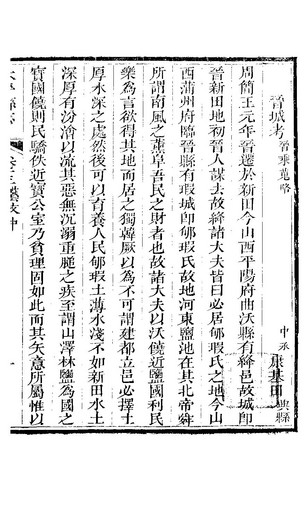 晉城考 晉乘蒐略 中丞 康基田 興縣
周簡王元年晉遷於新田今山西平陽府曲沃縣有絳邑故城即
晉新田地初晉人謀去故絳諸大夫皆曰必居郇瑕氏之地今山
西蒲州府臨晉縣有瑕城即郇瑕氏故地河東鹽池在其北帝舜
所謂南風之薰阜吾民之財者也故諸大夫以沃饒近鹽國利民
樂為言欲得其地而居之獨韓厥以為不可謂建都立邑必擇土
厚水深之處然後可以育養人民郇瑕土薄水淺不如新田水土
深厚有汾澮以流其惡無沉溺重膇之疾至謂山澤林鹽為國之
寶國饒則民驕佚近寶公室乃貧理固如此而其矢意所屬惟以